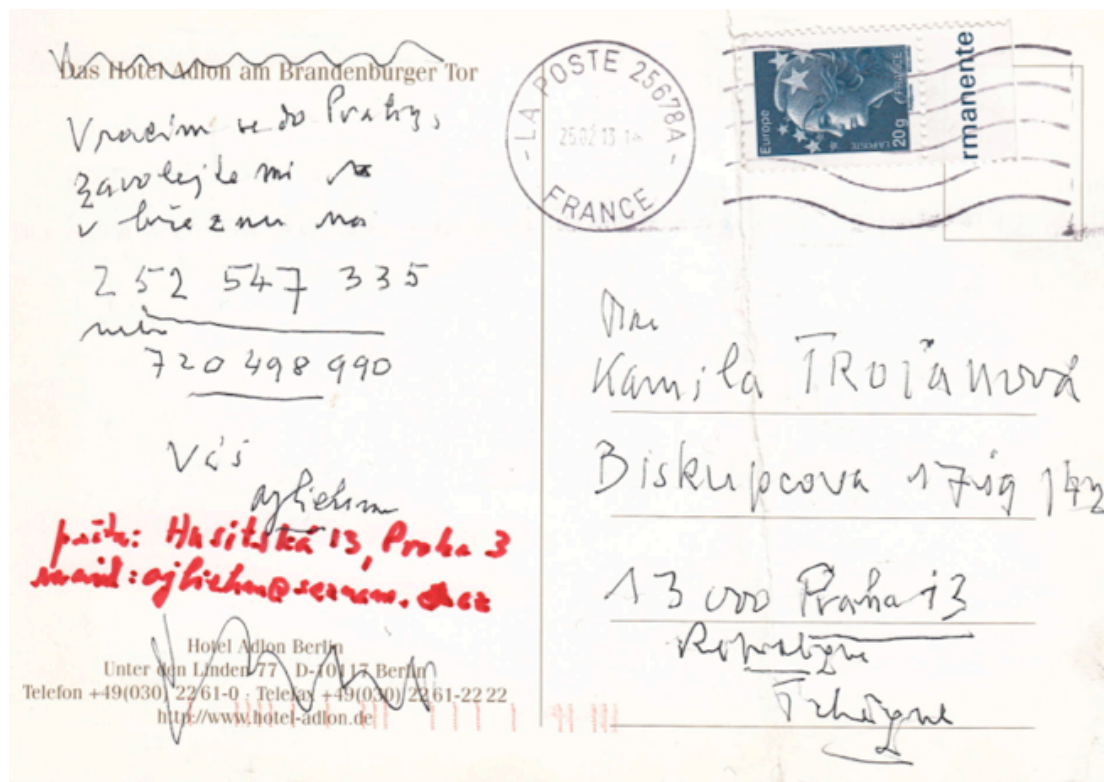 Das Hotel Adlon am Brandenburger Tor
Vracím se do Prahy,
zavolejte mi
v březnu na
252 547 335
nebo
720 498 990
Váš
ajliehm
pošta: Husitská 13, Praha 3
email: ajliehm@seznam.cz
Hotel Adlon Berlin
Unter den Linden 77 D-10117 Berlin
Telefon +49(030) 22 61-0 · Telefax +49(030) 22 61-22 22
http://www.hotel-adlon.de
LA POSTE 25678A
25.02.13
FRANCE
Europe
LA POSTE
20g
FRANCE
rmanente
Kamila TROJANOVÁ
Biskupcova
13 000 Praha 13
République
Tchèque